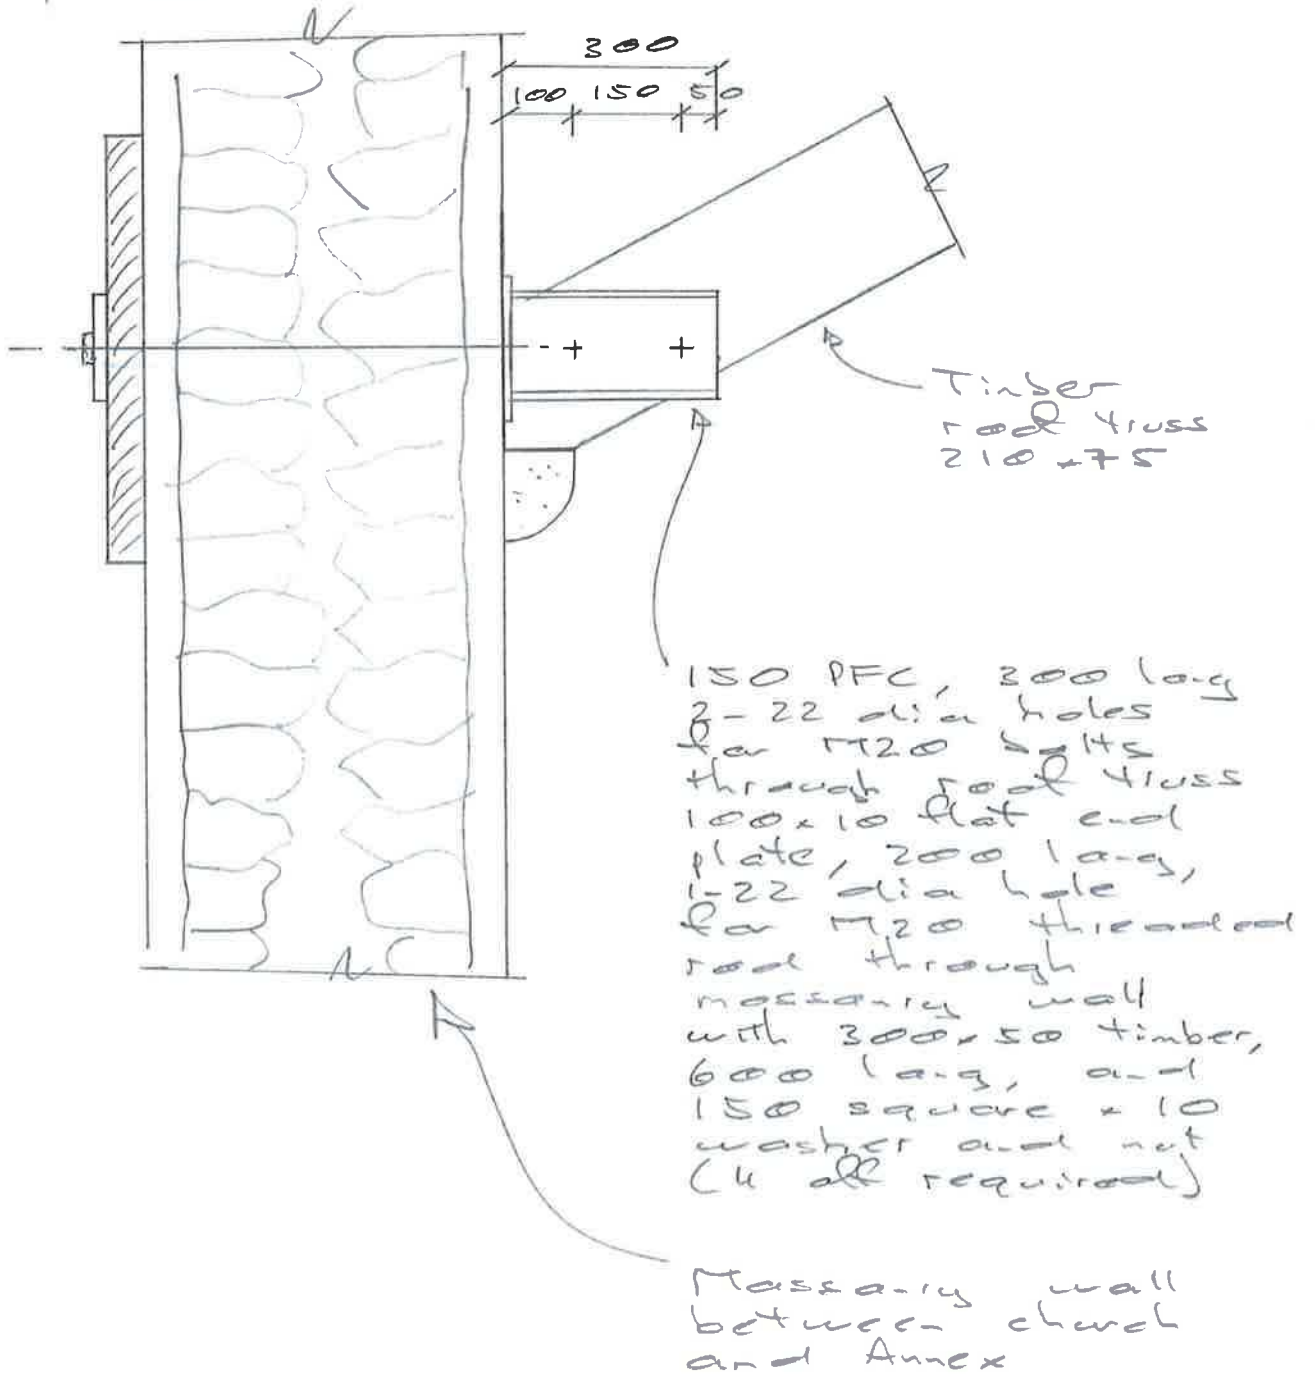 300
100 150 50
Timber
roof truss
210 x 75
150 PFC, 300 long
2-22 dia holes
for M20 bolts
through roof truss
100 x 10 flat end
plate, 200 long,
1-22 dia hole
for M20 threaded
rod through
massanry wall
with 300 x 50 timber,
600 long, and
150 square x 10
washer and nut
(4 off required)
Massanry wall
between church
and Annex